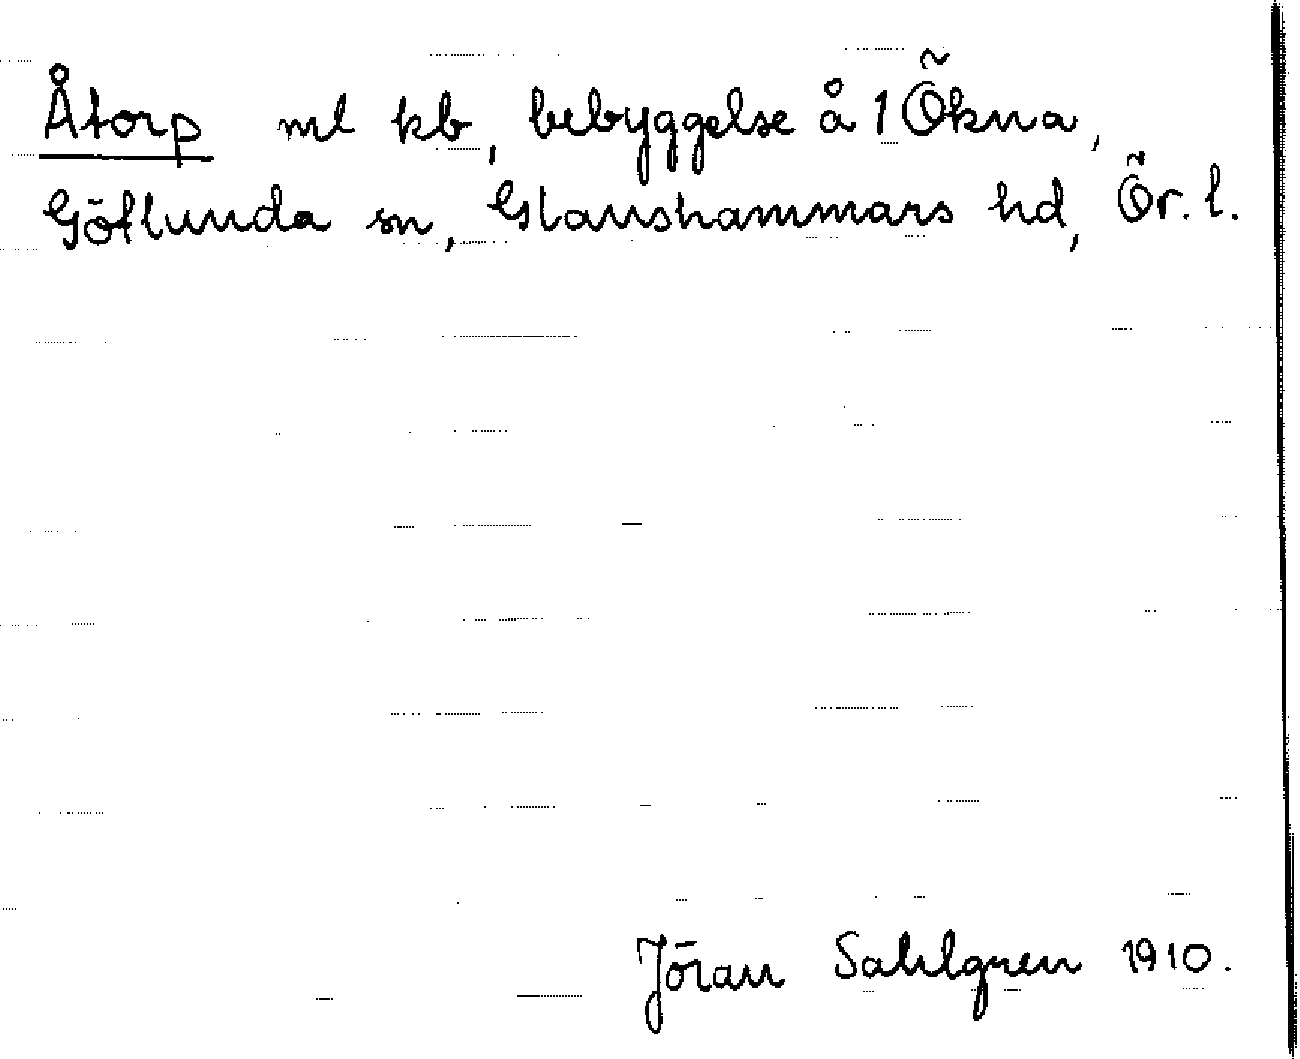 Åtorp ml kb, bebyggelse å 1 Ökna,
Götlunda sn, Glanshammars hd, Ör. l.
Jöran Sahlgren 1910.